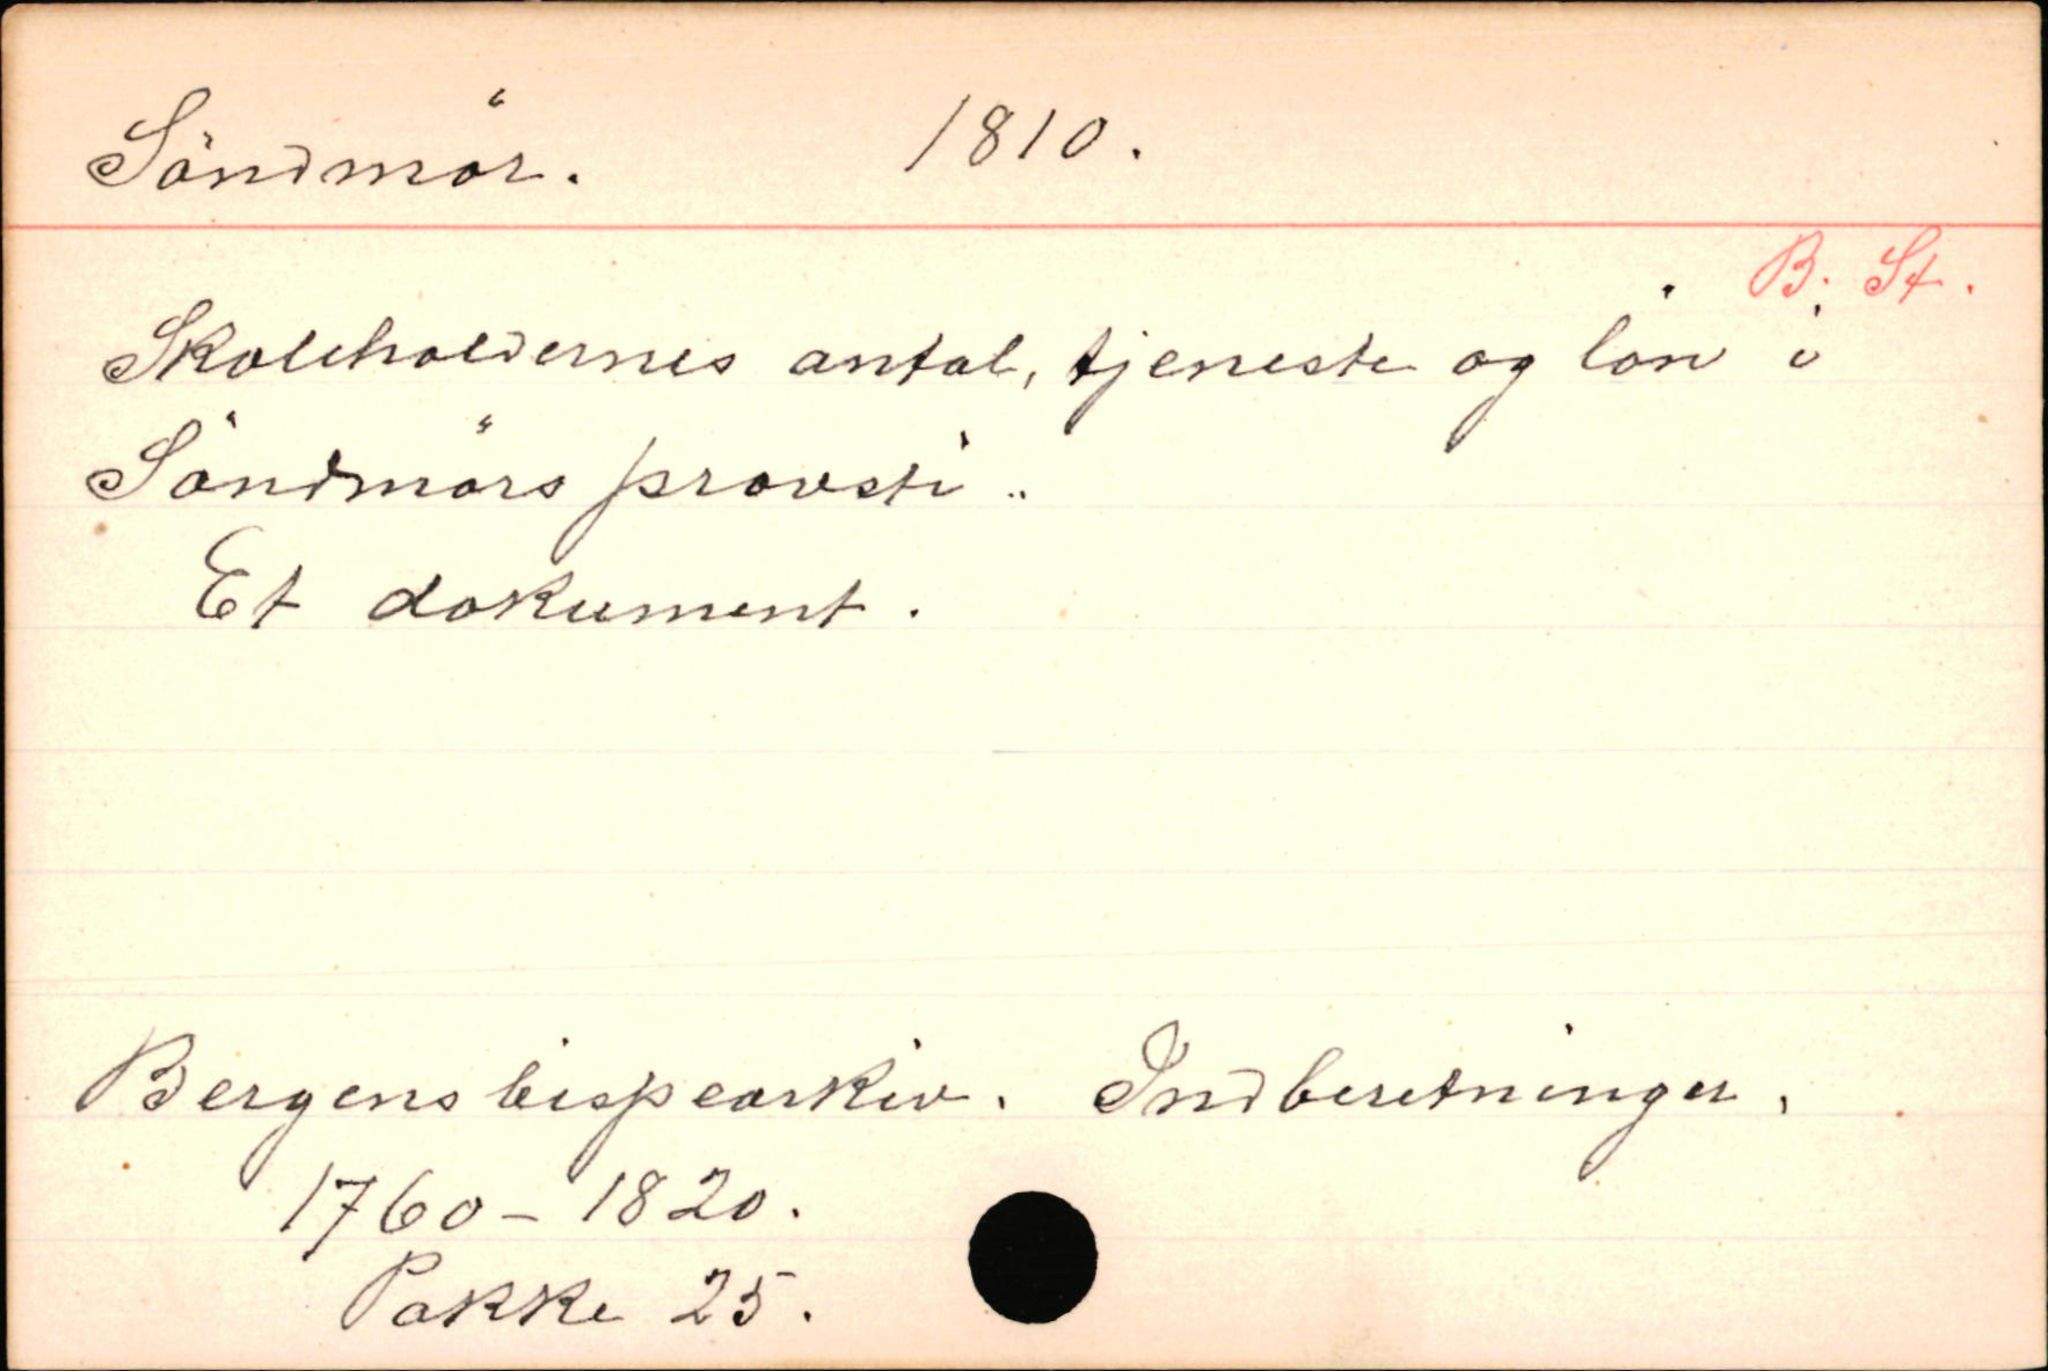 Söndmör. 1810.
B. St.
Skoleholdernes antal, tjeneste og lön i
Söndmörs provsti.
Et dokument.
Bergens bispearkiv. Indberetninger.
1760-1820.
Pakke 25.